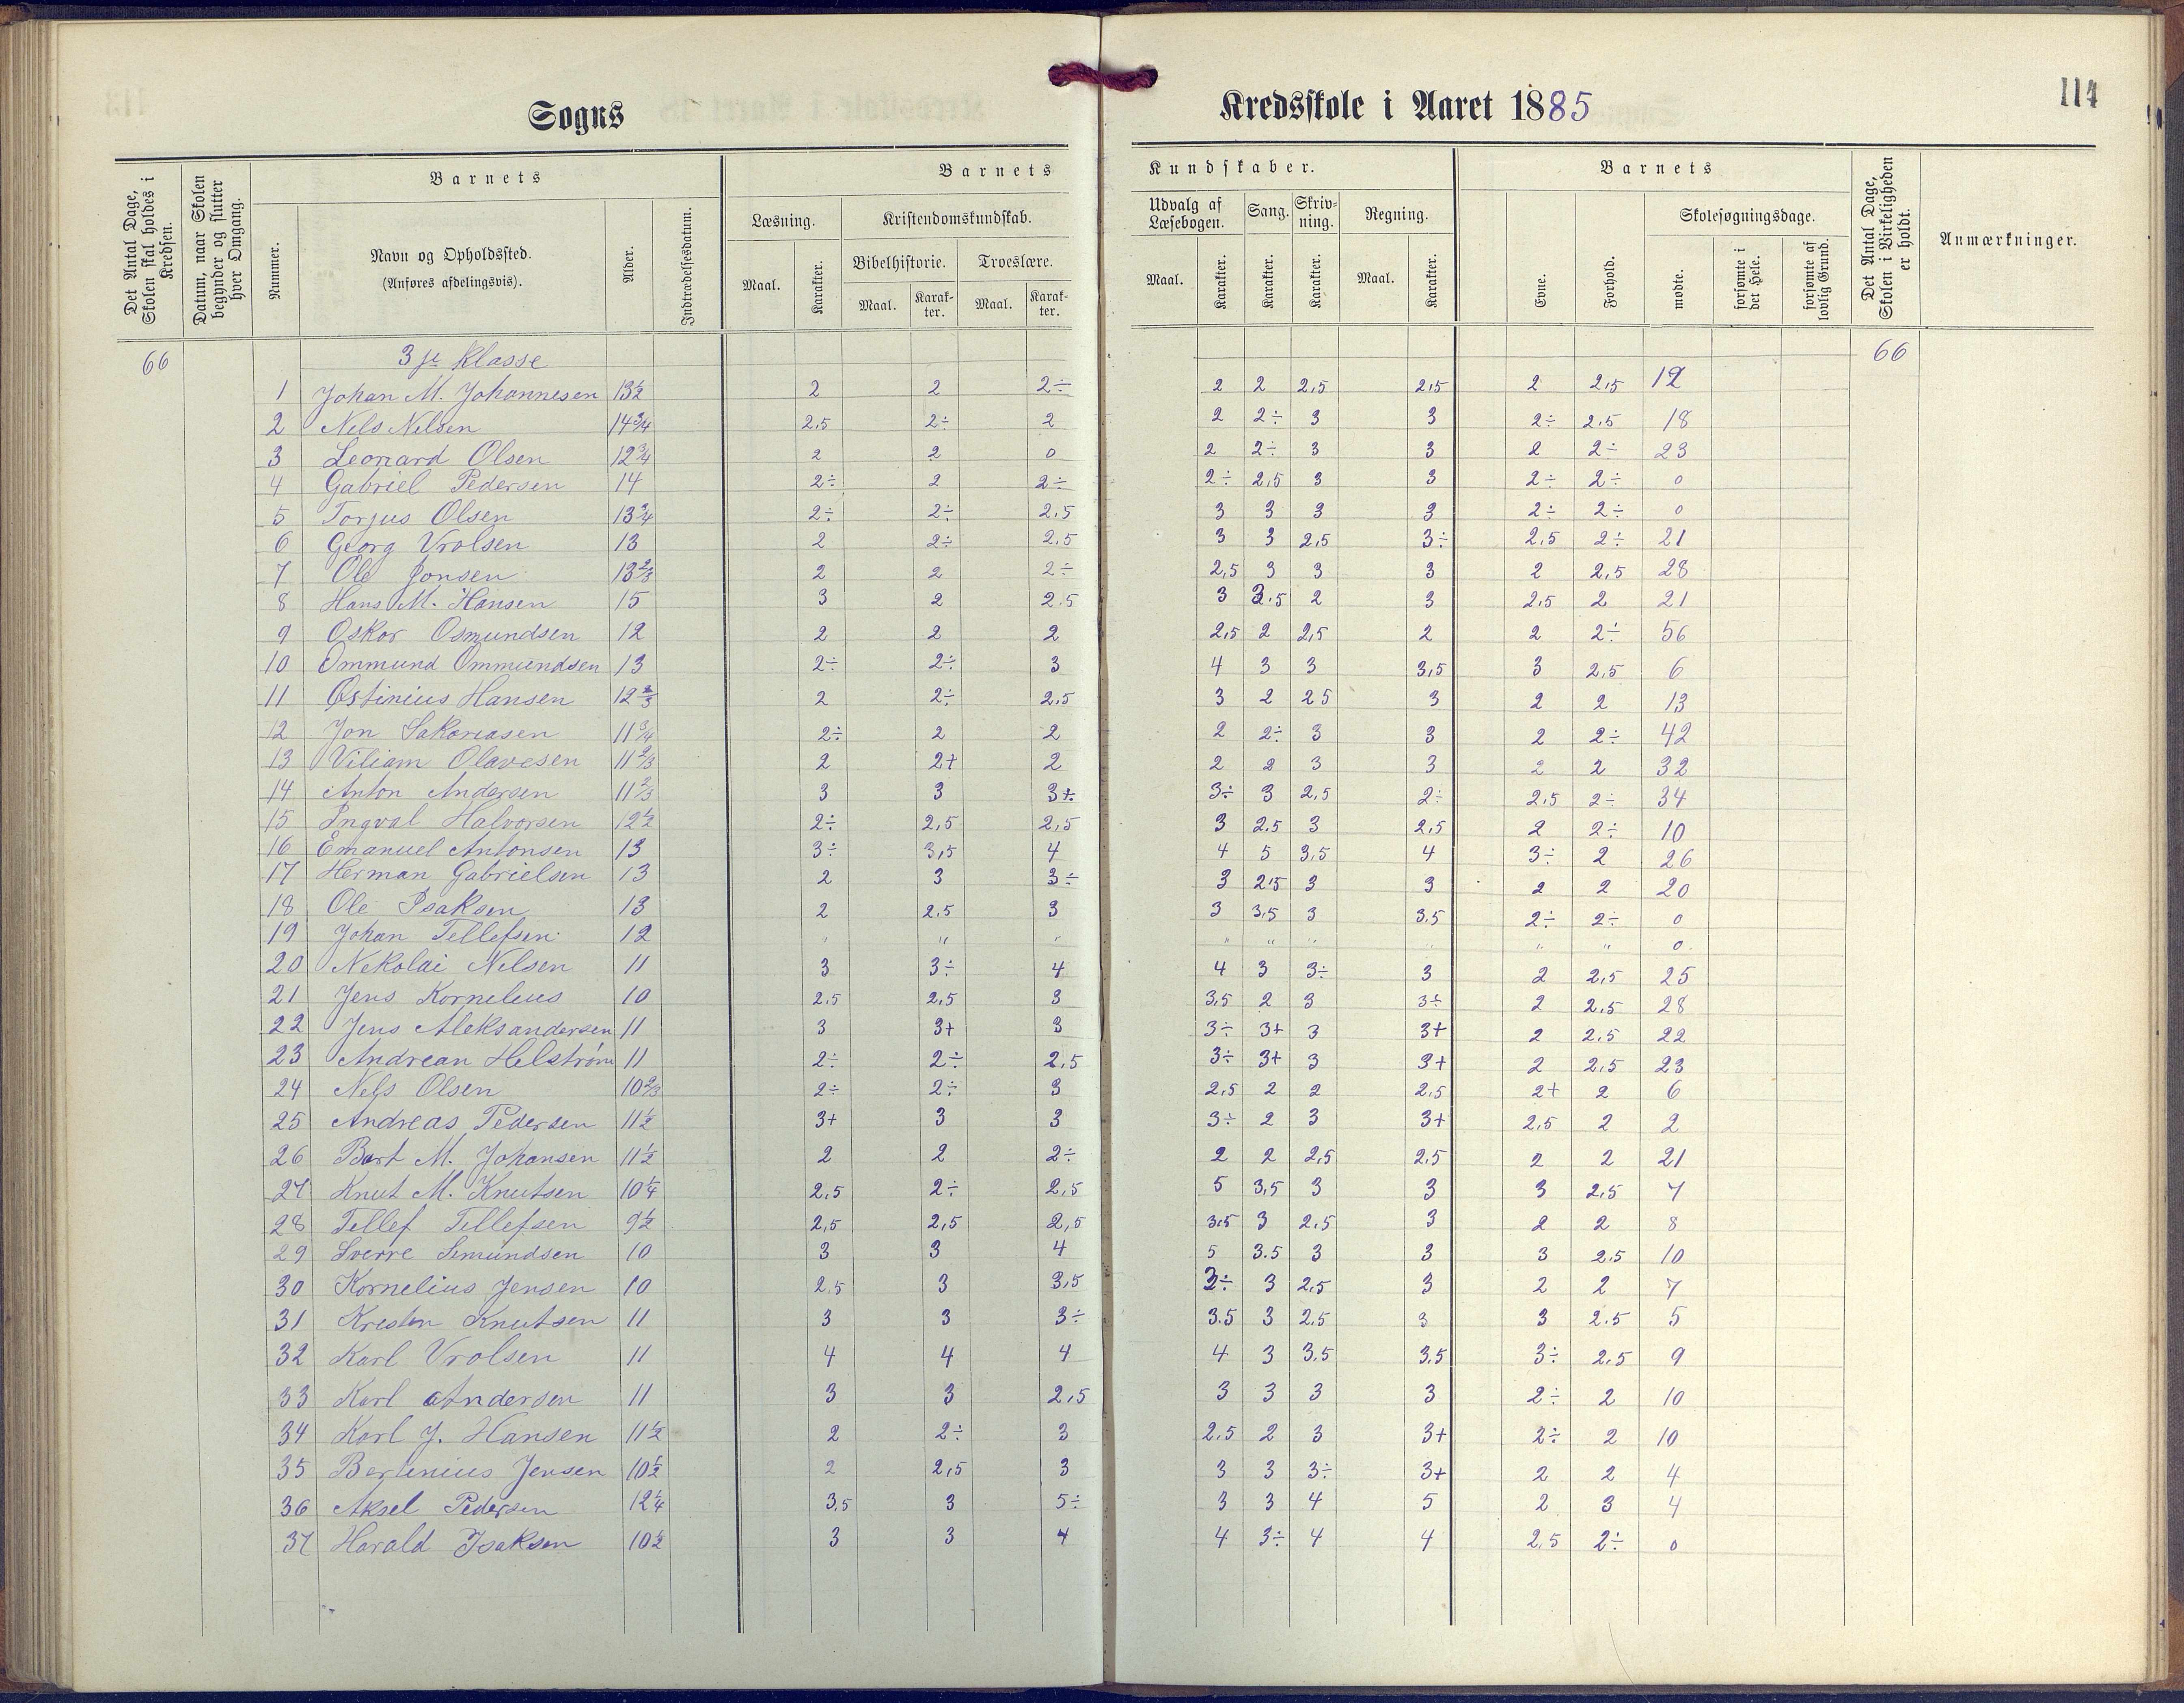 Sogns
Kredsskole i Aaret 1885
114
Det Antal Dage, Skolen skal holdes i Kredsen.
Datum, naar Skolen begynder og slutter hver Omgang.
Barnets
Nummer.
Navn og Opholdssted.
(Anføres afdelingsvis).
Alder.
Indtrædelsesdatum.
Barnets
Kundskaber.
Læsning.
Maal.
Karakter.
Kristendomskundskab.
Bibelhistorie.
Maal.
Karakter.
Troeslære.
Maal.
Karakter.
Udvalg af Læsebogen.
Maal.
Karakter.
Sang.
Karakter.
Skrivning.
Karakter.
Regning.
Maal.
Karakter.
Barnets
Evne.
Forhold.
Skolesøgningsdage.
mødte.
forsømte i det Hele.
forsømte af lovlig Grund.
Det Antal Dage, Skolen i Virkeligheden er holdt.
Anmærkninger.
66 3je Klasse 66
1 Johan M. Johannesen 13½ 2 2 2÷ 2 2 2,5 2,5 2 2,5 12
2 Nels Nelsen 14¾ 2,5 2÷ 2 2 2÷ 3 3 2÷ 2.5 18
3 Leonard Olsen 12¾ 2 2 0 2 2÷ 3 3 2 2÷ 23
4 Gabriel Pedersen 14 2÷ 2 2÷ 2÷ 2,5 3 3 2÷ 2÷ 0
5 Torjus Olsen 13¾ 2÷ 2÷ 2.5 3 3 3 3 2÷ 2÷ 0
6 Georg Vrolsen 13 2 2÷ 2.5 3 3 2,5 3÷ 2,5 2÷ 21
7 Ole Jonsen 13⅔ 2 2 2÷ 2,5 3 3 3 2 2,5 28
8 Hans M. Hansen 15 3 2 2.5 3 3.5 2 3 2,5 2 21
9 Oskar Osmundsen 12 2 2 2 2,5 2 2,5 2 2 2÷ 56
10 Ommund Ommundsen 13 2÷ 2÷ 3 4 3 3 3,5 3 2,5 6
11 Østinius Hansen 12⅔ 2 2÷ 2,5 3 2 25 3 2 2 13
12 Jon Sakariasen 11¾ 2÷ 2 2 2 2÷ 3 3 2 2÷ 42
13 Viliam Olavesen 11⅔ 2 2+ 2 2 2 3 3 2 2 32
14 Anton Andersen 11⅔ 3 3 3+ 3÷ 3 2,5 2÷ 2,5 2÷ 34
15 Ingval Halvorsen 12½ 2÷ 2,5 2,5 3 2.5 3 2,5 2 2÷ 10
16 Emanuel Antonsen 13 3÷ 3,5 4 4 5 3,5 4 3÷ 2 26
17 Herman Gabrielsen 13 2 3 3÷ 3 2,5 3 3 2 2 20
18 Ole Isaksen 13 2 2,5 3 3 3,5 3 3.5 2÷ 2÷ 0
19 Johan Tellefsen 12 " " " " " " " " " 0
20 Nekolai Nilsen 11 3 3÷ 4 4 3 3÷ 3 2 2,5 25
21 Jens Kornelius 10 2,5 2,5 3 3,5 2 3 3÷ 2 2,5 28
22 Jens Aleksandersen 11 3 3+ 3 3÷ 3+ 3 3+ 2 2,5 22
23 Andrean Helstrøm 11 2÷ 2÷ 2,5 3÷ 3+ 3 3+ 2 2,5 23
24 Nels Olsen 10⅔ 2÷ 2÷ 3 2,5 2 2 2,5 2+ 2 6
25 Andreas Pedersen 11½ 3+ 3 3 3÷ 2 3 3+ 2,5 2 2
26 Bart M. Johansen 11½ 2 2 2÷ 2 2 2,5 2,5 2 2 21
27 Knut M. Knutsen 10¼ 2,5 2÷ 2,5 5 3,5 3 3 3 2,5 7
28 Tellef Tellefsen 9½ 2,5 2,5 2,5 3,5 3 2,5 3 2 2 8
29 Sverre Semundsen 10 3 3 4 5 3.5 3 3 3 2.5 10
30 Kornelius Jensen 10 2,5 3 3,5 3÷ 3 2,5 3 2 2 7
31 Kresten Knutsen 11 3 3 3÷ 3.5 3 2.5 3 3 2.5 5
32 Karl Vrolsen 11 4 4 4 4 3 3.5 3.5 3÷ 2.5 9
33 Karl Andersen 11 3 3 2,5 3 3 3 3 2÷ 2 10
34 Karl J. Hansen 11½ 2 2÷ 3 2.5 2 3 3+ 2÷ 2 10
35 Bertinius Jensen 10½ 2 2,5 3 3 3 3÷ 3+ 2 2 4
36 Aksel Pedersen 12¼ 3,5 3 5÷ 3 3 4 5 2 3 4
37 Harald Isaksen 10½ 3 3 4 4 3÷ 4 4 2,5 2÷ 0